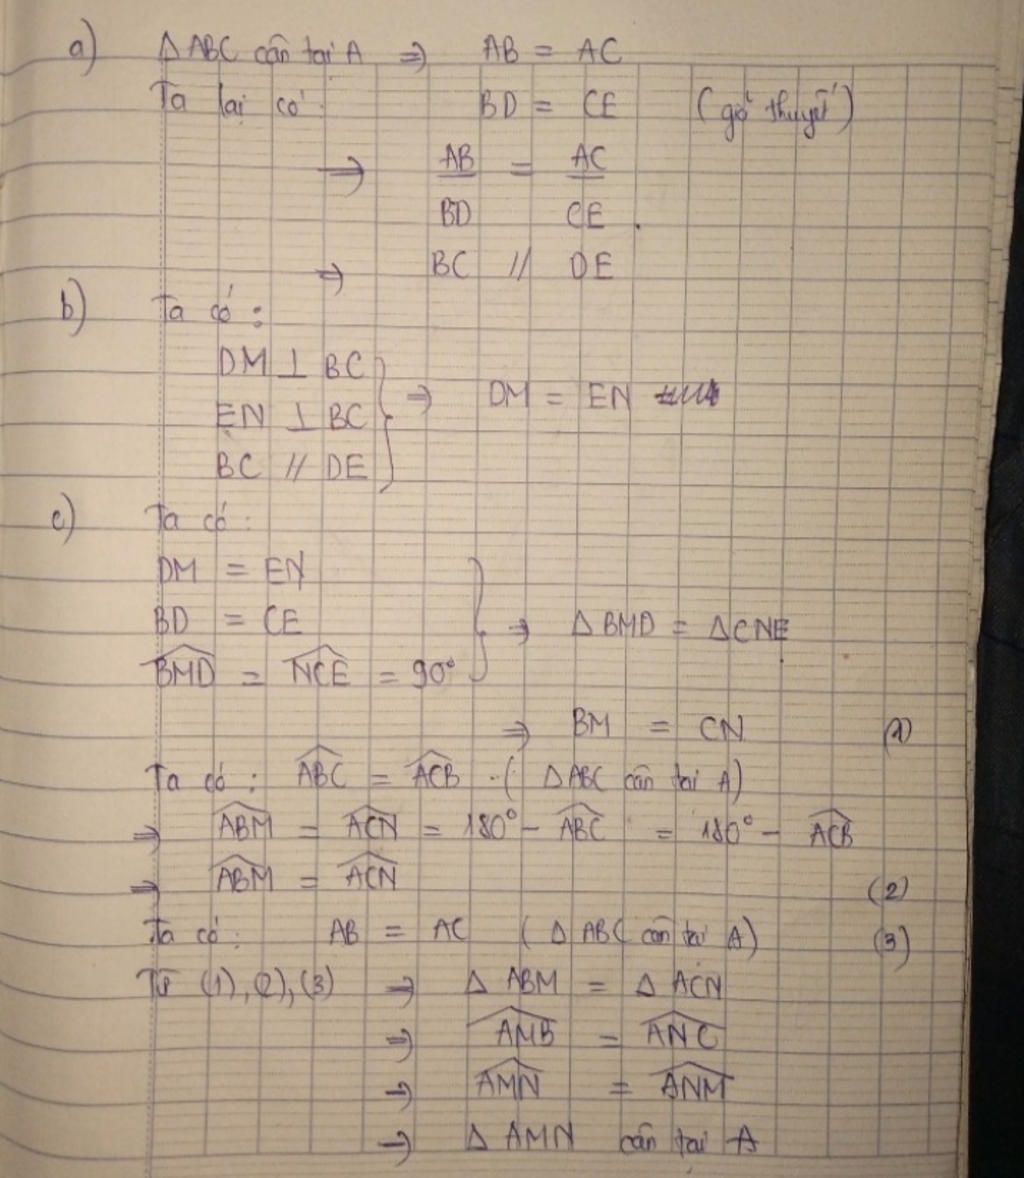 a) Δ ABC cân tại A ⇒ AB = AC
Ta lại có: BD = CE (giả thuyết)
⇒ AB/BD = AC/CE.
⇒ BC // DE
b) Ta có:
DM ⊥ BC
EN ⊥ BC ⇒ DM = EN
BC // DE
c) Ta có:
DM = EN
BD = CE ⇒ Δ BMD = Δ CNE
\widehat{BMD} = \widehat{NCE} = 90°
⇒ BM = CN (1)
Ta có: \widehat{ABC} = \widehat{ACB} (Δ ABC cân tại A)
⇒ \widehat{ABM} = \widehat{ACN} = 180° - \widehat{ABC} = 180° - \widehat{ACB}
⇒ \widehat{ABM} = \widehat{ACN} (2)
Ta có: AB = AC (Δ ABC cân tại A) (3)
Từ (1), (2), (3) ⇒ Δ ABM = Δ ACN
⇒ \widehat{AMB} = \widehat{ANC}
⇒ \widehat{AMN} = \widehat{ANM}
⇒ Δ AMN cân tại A